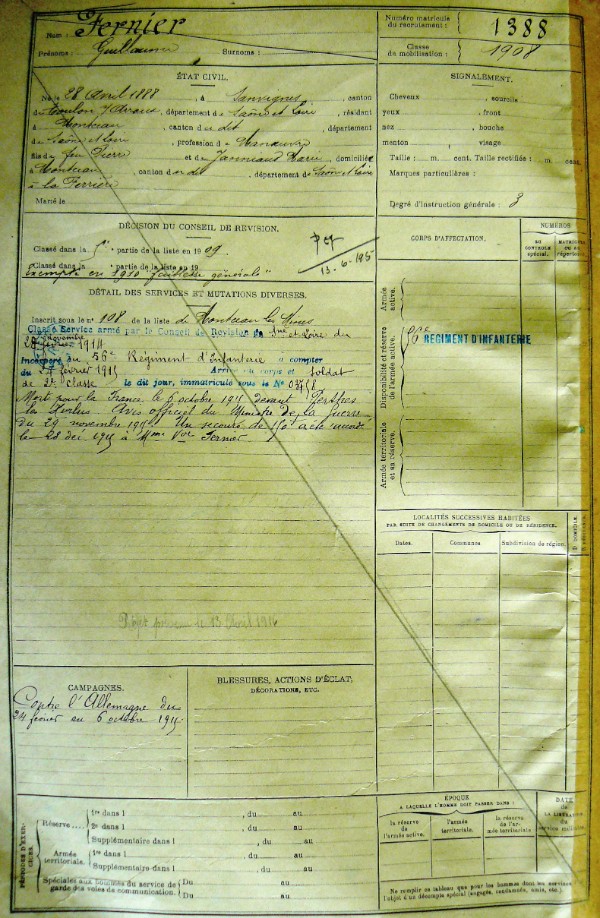 Nom : Fernier
Prénoms : Guillaume Surnoms :
Numéro matricule du recrutement : 1388
Classe de mobilisation : 1908
ÉTAT CIVIL.
Né le 28 Avril 1888, à Sanvignes, canton
de Toulon s/Arroux, département de Saône et Loire, résidant
à Montceau, canton de dit, département
de Saône et Loire, profession de Manœuvre
fils de feu Pierre et de Janneaud Marie, domiciliés
à Montceau, canton de dit, département de Saône et Loire
à la Ferrière
Marié le
SIGNALEMENT.
Cheveux , sourcils
yeux , front
nez , bouche
menton , visage
Taille : m. cent. Taille rectifiée : m. cent.
Marques particulières :
Degré d'instruction générale : 3
DÉCISION DU CONSEIL DE RÉVISION.
Classé dans la 5e partie de la liste en 1909.
Classé dans la " partie de la liste en 19
exempté en 1910 "faiblesse générale"
13-6-195
DÉTAIL DES SERVICES ET MUTATIONS DIVERSES.
Inscrit sous le n° 108 de la liste de Montceau les Mines
Classé Service armé par le Conseil de Révision de Sne et Loire du
novembre
1914
Incorporé au 56e Régiment d'Infanterie à compter
du 24 février 1915 Arrivé au corps et soldat
de 2e classe le dit jour, immatriculé sous le N°
Mort pour la France le 6 octobre 1915 devant Perthes
les Hurlus. Avis officiel du Ministre de la Guerre
du 29 novembre 1915. Un secours de 150f a été
le 28 déc 1915 à Mme Vve Fernier.
13 Avril 1916
CORPS D'AFFECTATION.
NUMÉROS
AU CONTRÔLE spécial.
MATRICULE OU AU répertoire.
Armée active.
Disponibilité et réserve de l'armée active.
56e RÉGIMENT D'INFANTERIE
Armée territoriale et sa réserve.
LOCALITÉS SUCCESSIVES HABITÉES
PAR SUITE DE CHANGEMENTS DE DOMICILE OU DE RÉSIDENCE.
Dates.
Communes
Subdivision de région.
CAMPAGNES.
Contre l'Allemagne du
24 février au 6 octobre 1915.
BLESSURES, ACTIONS D'ÉCLAT,
DÉCORATIONS, ETC.
PÉRIODES D'EXERCICES
Réserve
1re dans l , du au
2e dans l , du au
Supplémentaire dans l , du au
Armée territoriale.
1re dans l , du au
Supplémentaire dans l , du au
Spéciales aux hommes du service de garde des voies de communication.
Du au
Du au
ÉPOQUE
A LAQUELLE L'HOMME DOIT PASSER DANS :
la réserve de l'armée active.
l'armée territoriale.
la réserve de l'armée territoriale
DATE DE LA LIBÉRATION du service militaire.
Ne remplir ce tableau que pour les hommes dont les services
l'objet d'un décompte spécial (engagés, condamnés, omis, etc.)